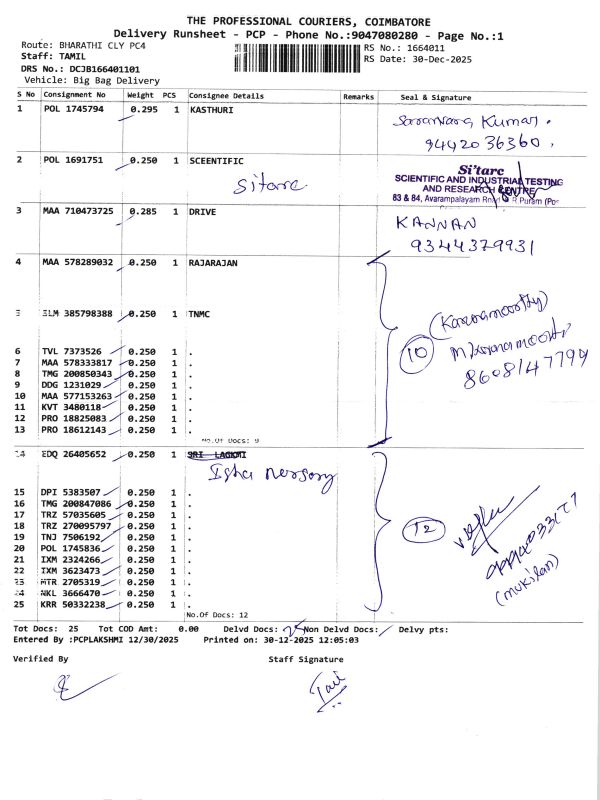 THE PROFESSIONAL COURIERS, COIMBATORE
Delivery Runsheet - PCP - Phone No.:9047080280 - Page No.:1
Route: BHARATHI CLY PC4 RS No.: 1664011
Staff: TAMIL RS Date: 30-Dec-2025
DRS No.: DCJB166401101
Vehicle: Big Bag Delivery
S No Consignment No Weight PCS Consignee Details Remarks Seal & Signature
1 POL 1745794 0.295 1 KASTHURI
Kumar.
9442036360.
2 POL 1691751 0.250 1 SCEENTIFIC
Sitarc
Si'tarc
SCIENTIFIC AND INDUSTRIAL TESTING
AND RESEARCH CENTRE
83 & 84, Avarampalayam Road R Puram (Po
3 MAA 710473725 0.285 1 DRIVE
KANNAN
9344379931
4 MAA 578289032 0.250 1 RAJARAJAN
5 SLM 385798388 0.250 1 TNMC
10
8608147799
6 TVL 7373526 0.250 1 .
7 MAA 578333817 0.250 1 .
8 TMG 200850343 0.250 1 .
9 DDG 1231029 0.250 1 .
10 MAA 577153263 0.250 1 .
11 KVT 3480118 0.250 1 .
12 PRO 18825083 0.250 1 .
13 PRO 18612143 0.250 1 .
No.Of Docs: 9
14 EDQ 26405652 0.250 1 SRI
Isha nersory
15 DPI 5383507 0.250 1 .
16 TMG 200847086 0.250 1 .
17 TRZ 57035605 0.250 1 .
18 TRZ 270095797 0.250 1 .
19 TNJ 7506192 0.250 1 .
20 POL 1745836 0.250 1 .
21 IXM 2324266 0.250 1 .
22 IXM 3623473 0.250 1 .
23 MTR 2705319 0.250 1 .
24 NKL 3666470 0.250 1 .
25 KRR 50332238 0.250 1 .
12
(mukilan)
No.Of Docs: 12
Tot Docs: 25 Tot COD Amt: 0.00 Delvd Docs: 25 Non Delvd Docs: Delvy pts:
Entered By :PCPLAKSHMI 12/30/2025 Printed on: 30-12-2025 12:05:03
Verified By Staff Signature